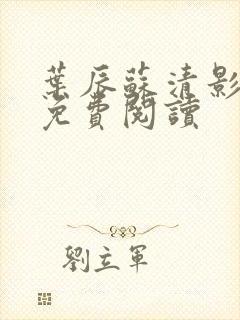 葉辰蘇清影
免費閱讀
劉立軍